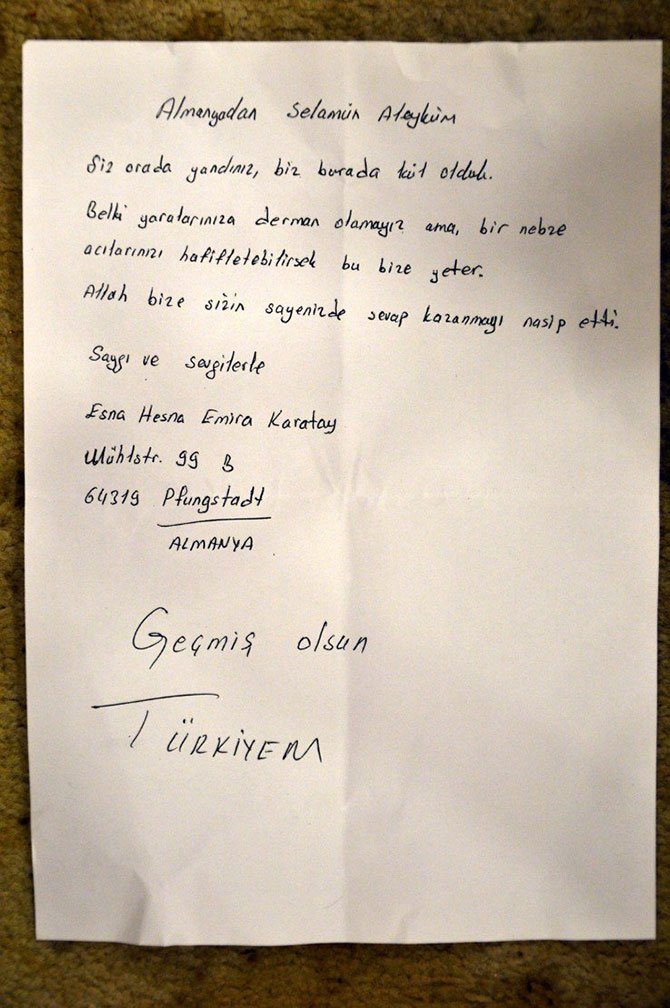 Almanyadan Selamün Aleyküm
Siz orada yandınız, biz burada kül olduk.
Belki yaralarınıza derman olamayız ama, bir nebze
acılarınızı hafifletebilirsek bu bize yeter.
Allah bize sizin sayenizde sevap kazanmayı nasip etti.
Saygı ve sevgilerle
Esna Hesna Emira Karatay
Mühlstr. 99 B
64319 Pfungstadt
ALMANYA
Geçmiş olsun
TÜRKİYEM